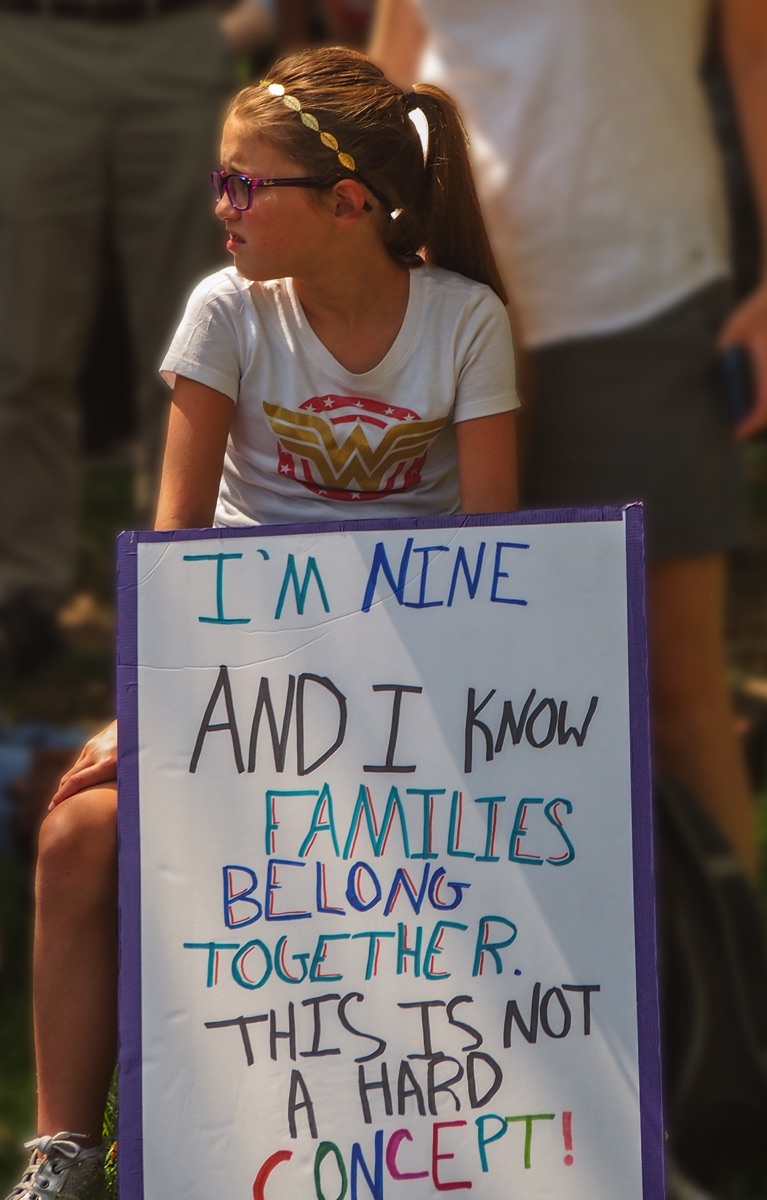 I'M NINE
AND I KNOW
FAMILIES
BELONG
TOGETHER.
THIS IS NOT
A HARD
CONCEPT!